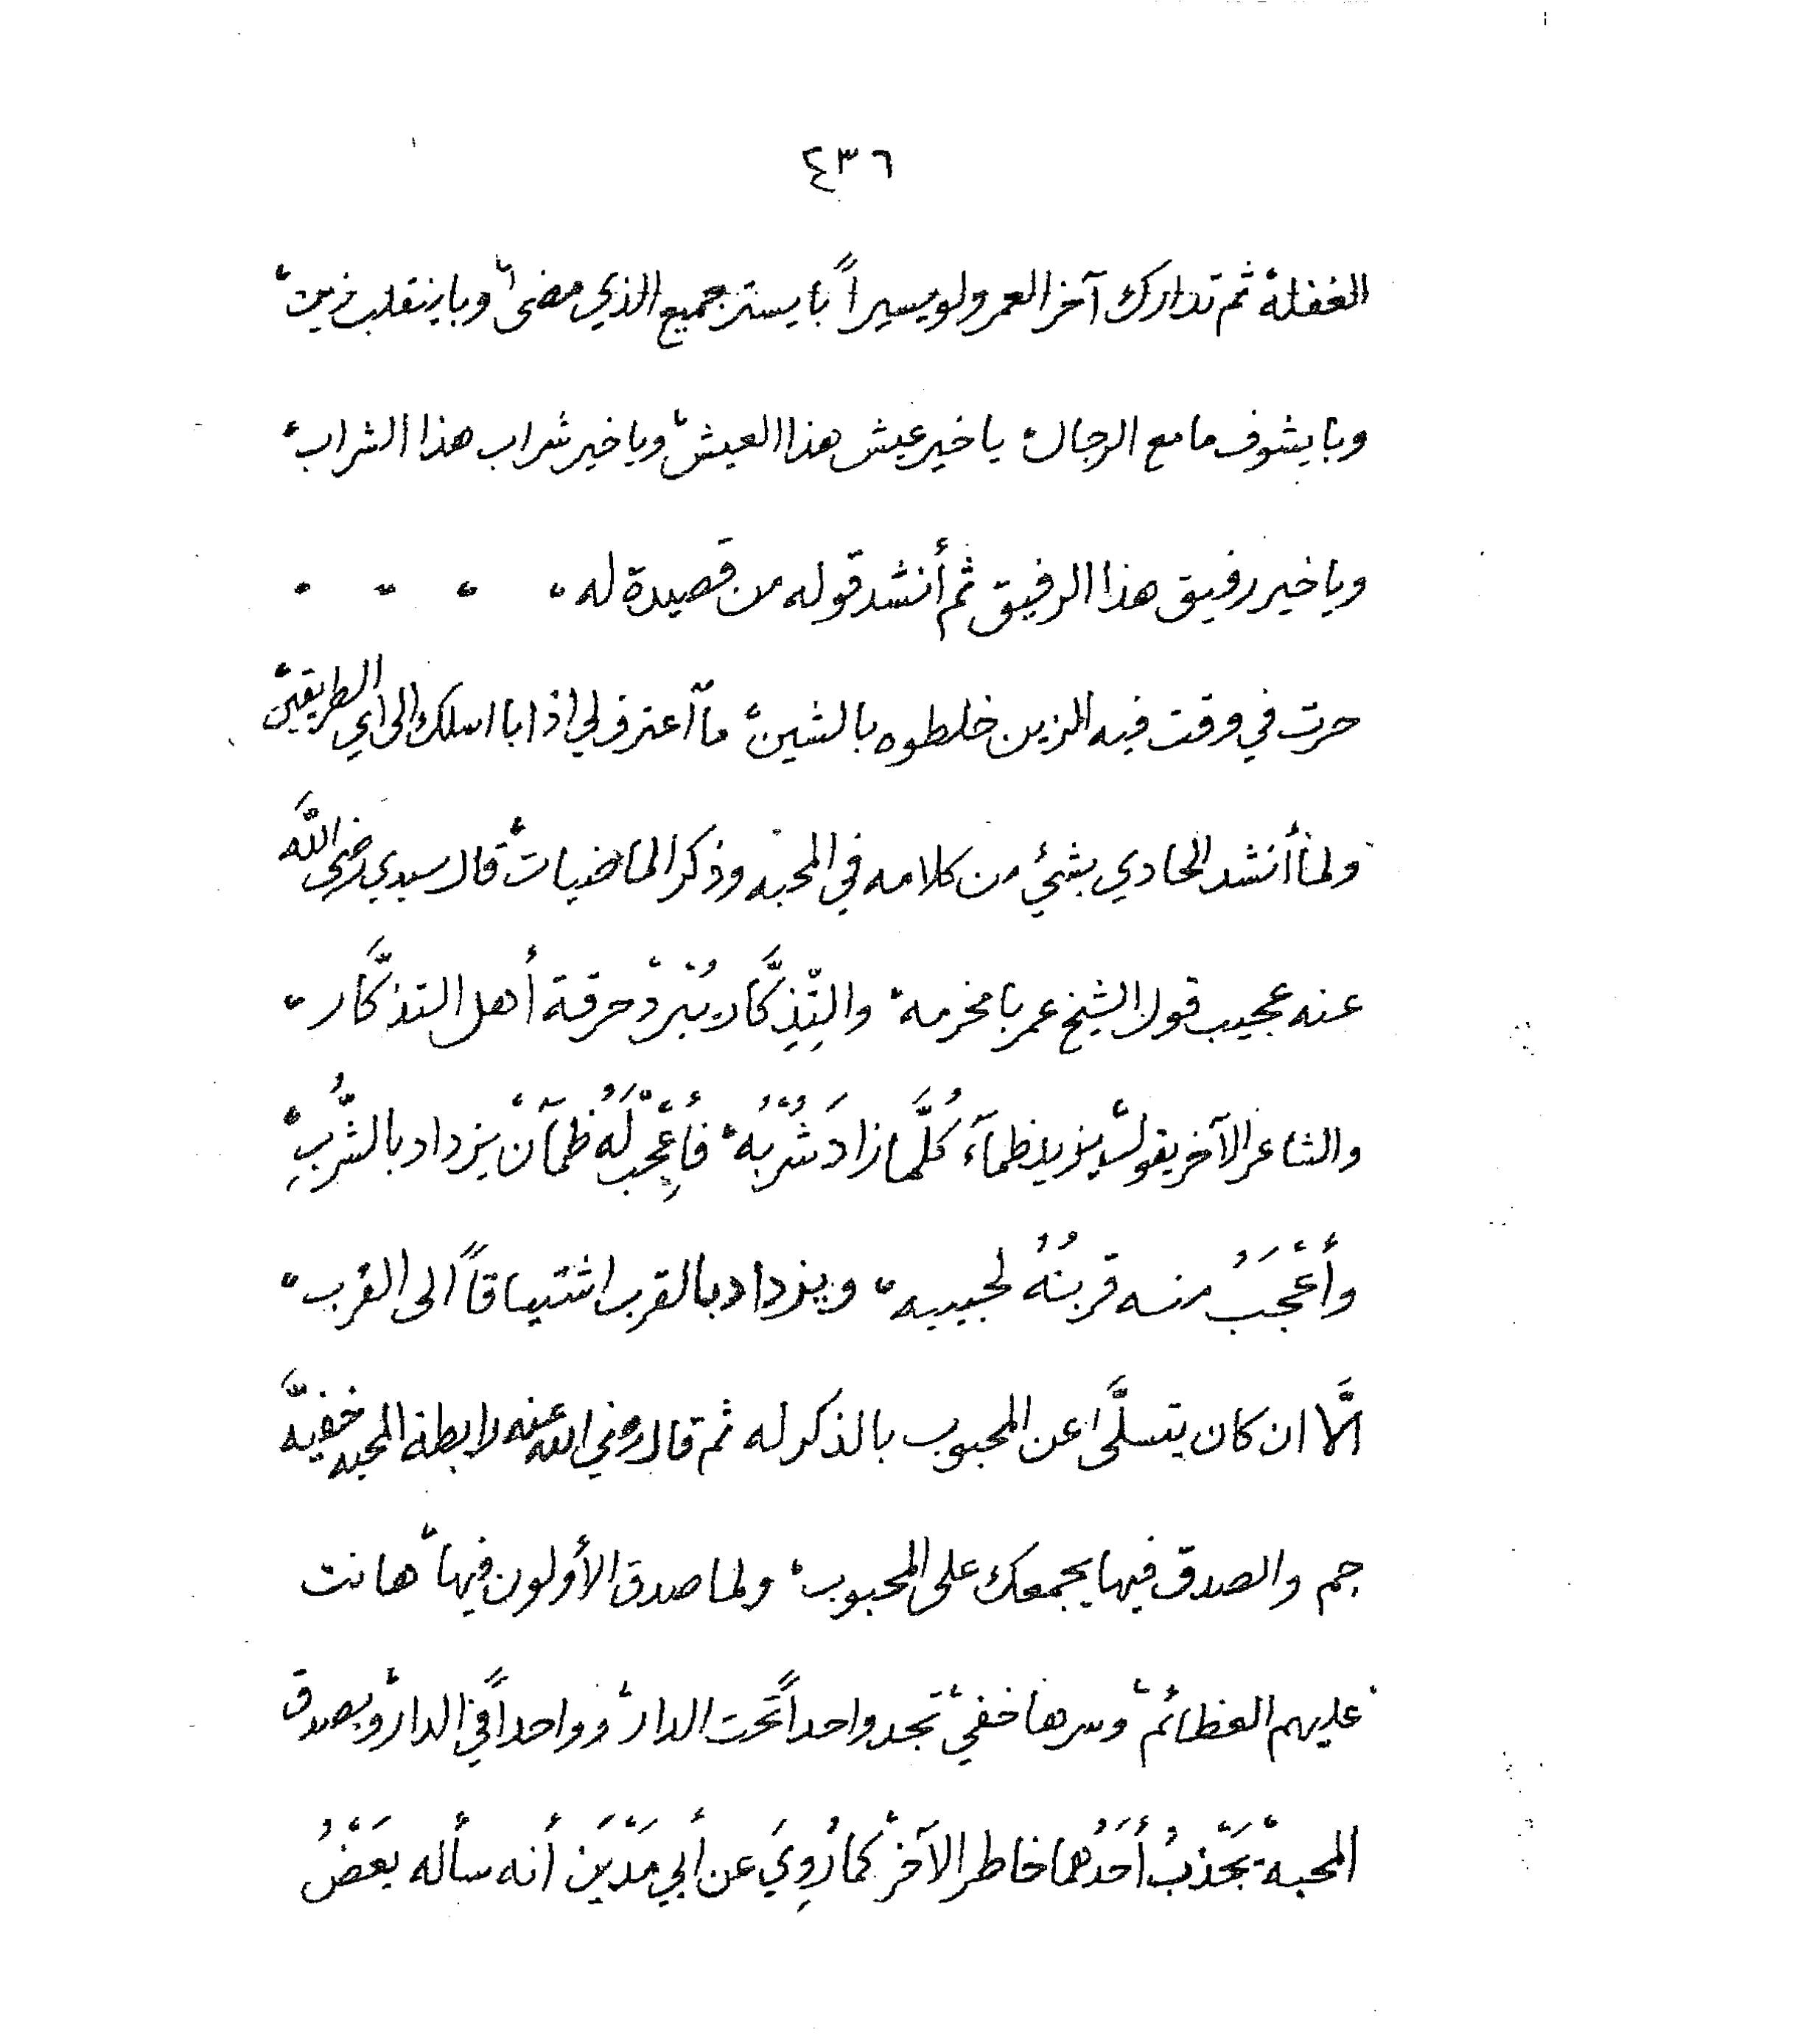 ٤٣٦
الغفلة، ثم تدارك آخر العمر ولو يسيراً با يستر جميع الذي مضى، وبا ينقلب زين،
وبا يشوف ما مع الرجال، يا خير عيش هذا العيش، ويا خير شراب هذا الشراب،
ويا خير رفيق هذا الرفيق ثم أنشد قوله من قصيدة له ،
حرت في وقت فيه الزين خلطوه بالشين، ما أعترف لي اذا با اسلك الى اي الطريقين،
ولما أنشد الحادي بشئ من كلامه في المحبه وذكر الماضيات، قال سيدي رضي الله
عنه عجيب قول الشيخ عمر بامخرمه، والتِّذِكَّار يُبْرِدْ حرقة أهل التذكَّار،
والشاعر الآخر يقول، يزيد ظمآءَ كُلَّما زادَ شُرْبُهُ، فأَعْجِبْ لَهُ ظمآنْ يزداد بالشُّربِ،
وأعْجَبُ منه قربُهُ لحبيبه، ويزداد بالقرب اشتياقاً الى القرب،
الَّا ان كان يتسلَّى عن المحبوب بالذكر له ثم قال رضي الله عنه رابطة المحبه خفيَّه
جم والصدق فيها يجمعك على المحبوب، ولما صدق الأولون فيها، هانت
عليهم العظائم، وسرها خفي، تجد واحداً تحت الدار، وواحداً في الدار، وبصدق
المحبة، يَجْذِبُ أَحَدُهما خاطر الآخر، كما رُوِيَ عن أبي مَدْيَن أنه سأله بَعْضُ